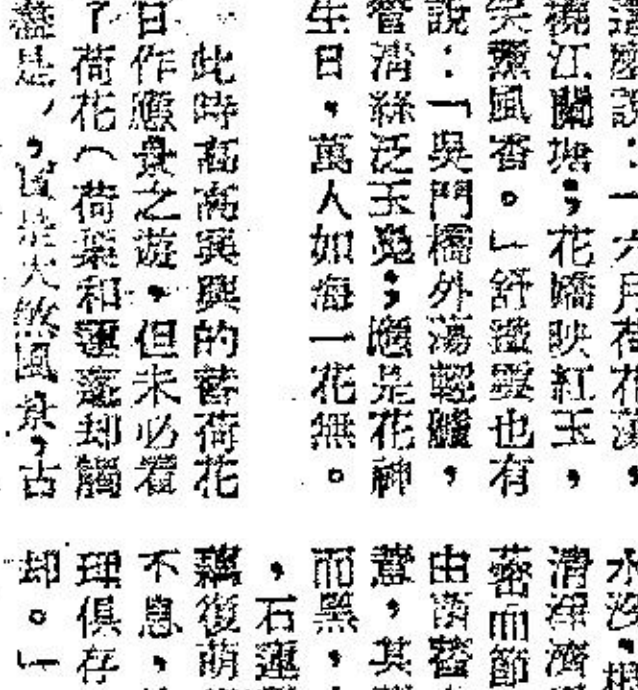 這麼說:「六月荷花蕩,
橈江闌塘;花嬌映紅玉,
笑薰風香。」舒鐵雲也有
說:「吳門橋外蕩輕艫,
管清絲泛玉鳧;應是花神
生日,萬人如海一花無。
此時高高興興的替荷花
日作應景之遊,但未必看
了荷花(荷葉和蓮蓬却觸
盡是),實是大煞風景,古
水沙,
清淨濟
密而節
由菡萏
薏,其
而黑,
,石蓮
藕復萌
不息,
理俱存
却。」